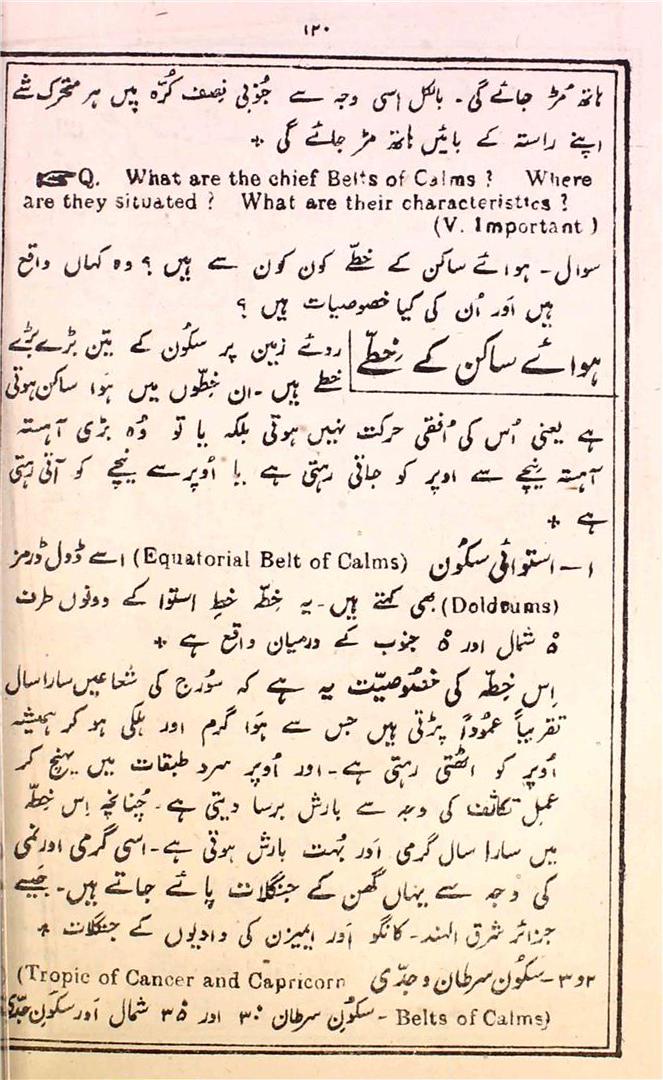 ۱۲۰
ہاتھ مُڑ جائے گی۔ بالکل اسی وجہ سے جنُوبی نِصف کُرّہ میں ہر متحرک شے
اپنے راستہ کے بائیں ہاتھ مڑ جائے گی ٭
☞Q. What are the chief Belts of Calms ? Where
are they situated ? What are their characteristics ?
(V. Important )
سوال۔ ہوائے ساکن کے خطّے کون کون سے ہیں ؟ وہ کہاں واقع
ہیں اَور اُن کی کیا خصوصیات ہیں ؟
ہوائے ساکن کے خِطّے
روئے زمین پر سکُون کے تین بڑے بڑے
خطے ہیں۔ ان خِطّوں میں ہَوا ساکن ہوتی
ہے یعنی اُس کی اُفقی حرکت نہیں ہوتی بلکہ یا تو وُہ بڑی آہستہ
آہستہ نیچے سے اوپر کو جاتی رہتی ہے یا اُوپر سے نیچے کو آتی رہتی
ہے ٭
۱۔ استوائی سکُون (Equatorial Belt of Calms) اسے ڈول ڈرمز
(Doldrums) بھی کہتے ہیں۔ یہ خِطّہ خطِ استوا کے دونوں طرف
۵° شمال اور ۵° جنوب کے درمیان واقع ہے ٭
اِس خِطّہ کی خصُوصیّت یہ ہے کہ سُورج کی شُعاعیں سارا سال
تقریباً عمُوداً پڑتی ہیں جس سے ہَوا گرم اور ہلکی ہو کر ہمیشہ
اُوپر کو اٹھتی رہتی ہے۔ اور اُوپر سرد طبقات میں پہنچ کر
عملِ تکاثف کی وجہ سے بارش برسا دیتی ہے۔ چُنانچہ اِس خِطّہ
میں سارا سال گرمی اَور بُہت بارش ہوتی ہے۔ اسی گرمی اور نمی
کی وجہ سے یہاں گھن کے جنگلات پائے جاتے ہیں۔ جَیسے
جزائر شرق الہند۔ کانگو اَور ایمیزن کی وادیوں کے جنگلات ٭
۲و۳۔ سکُون سرطان و جدّی (Tropic of Cancer and Capricorn
Belts of Calms)۔ سکُونِ سرطان ۳۰° اور ۳۵° شمال اَور سکُونِ جدّی